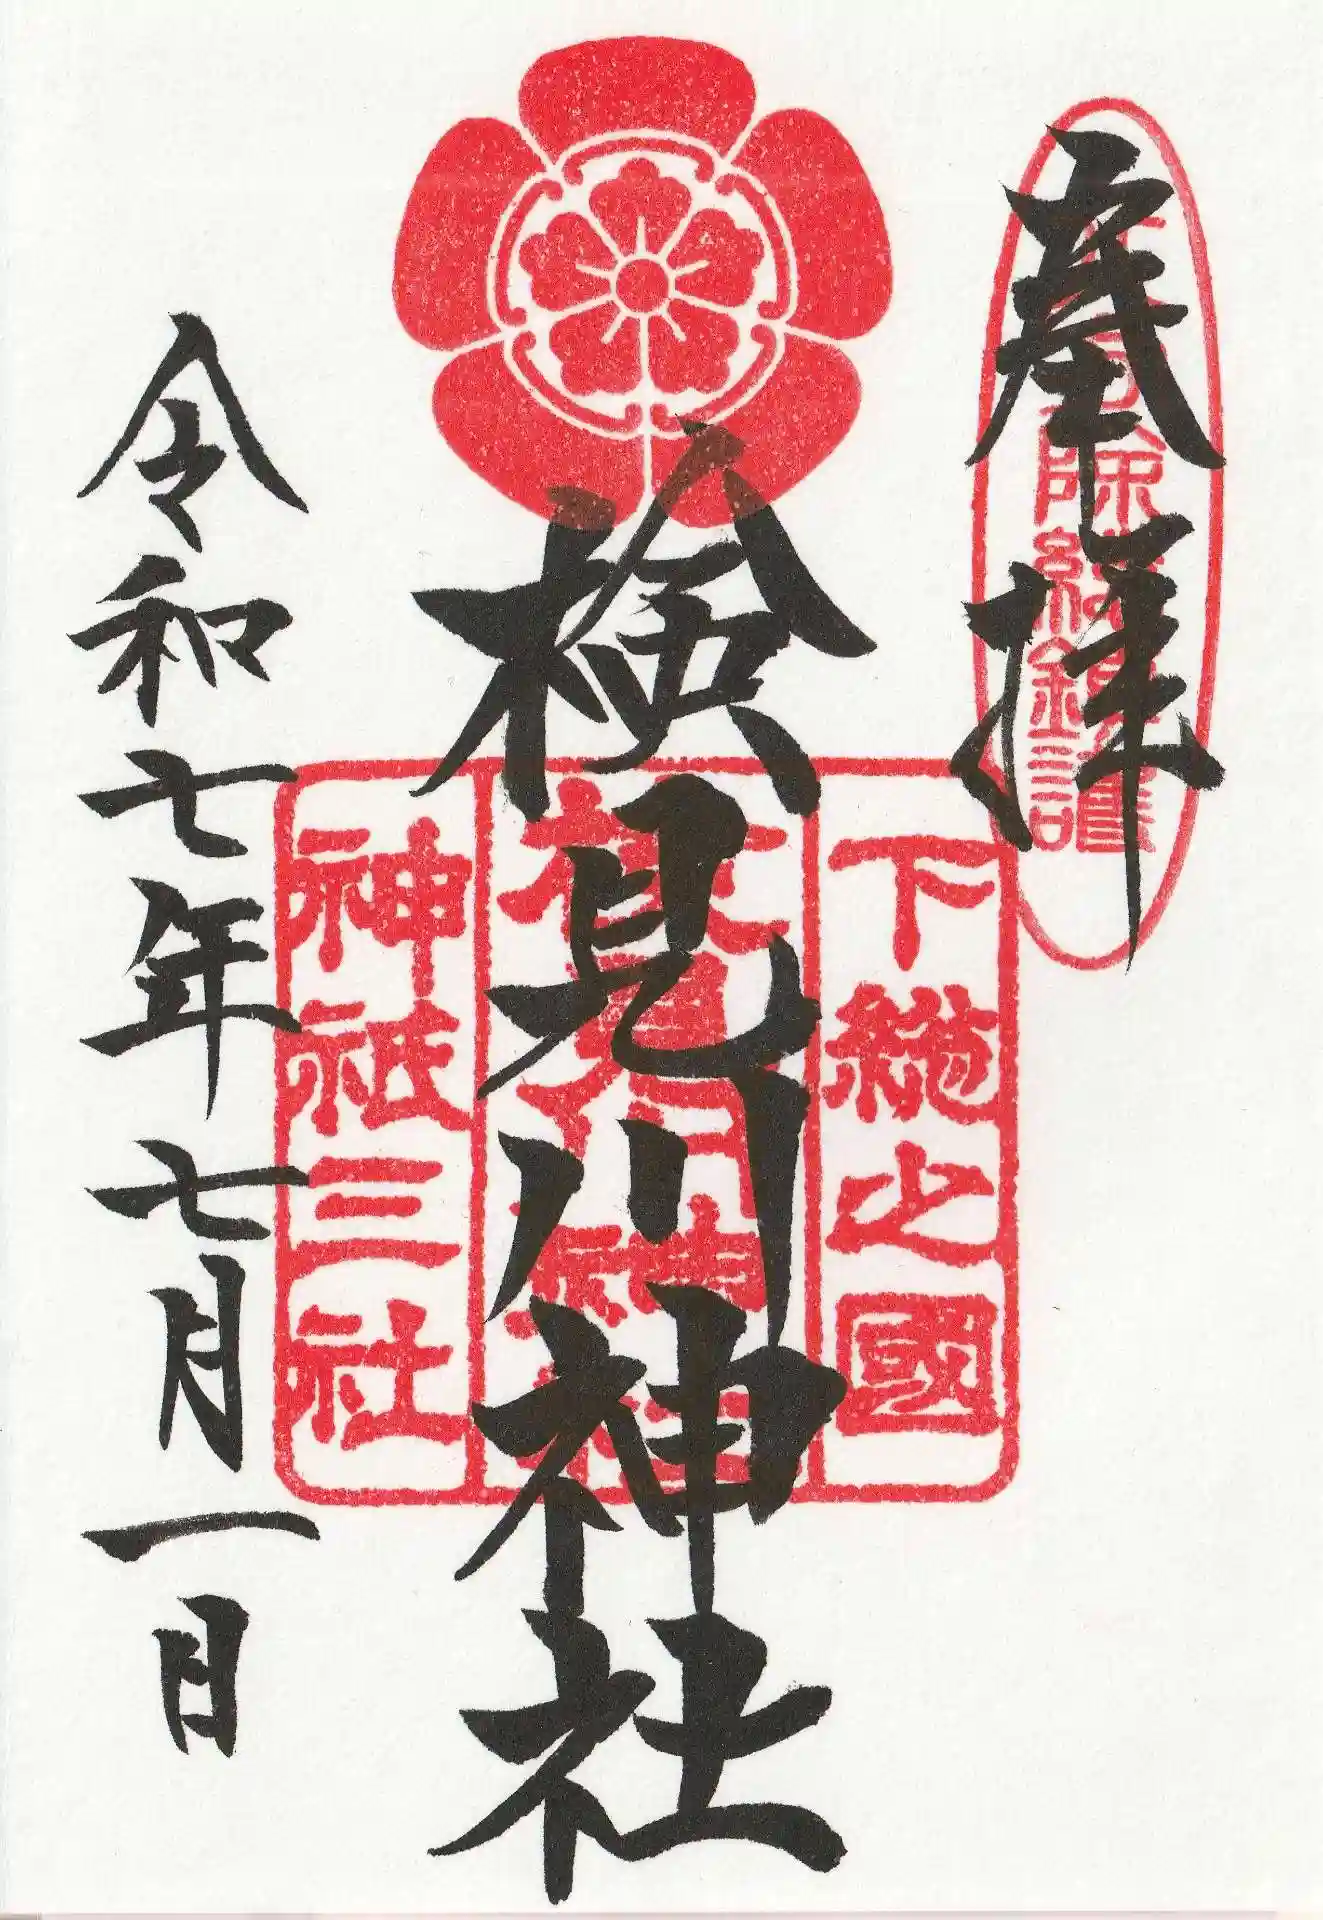 奉拝
検見川神社
令和七年七月一日
下総之國
神祇三社